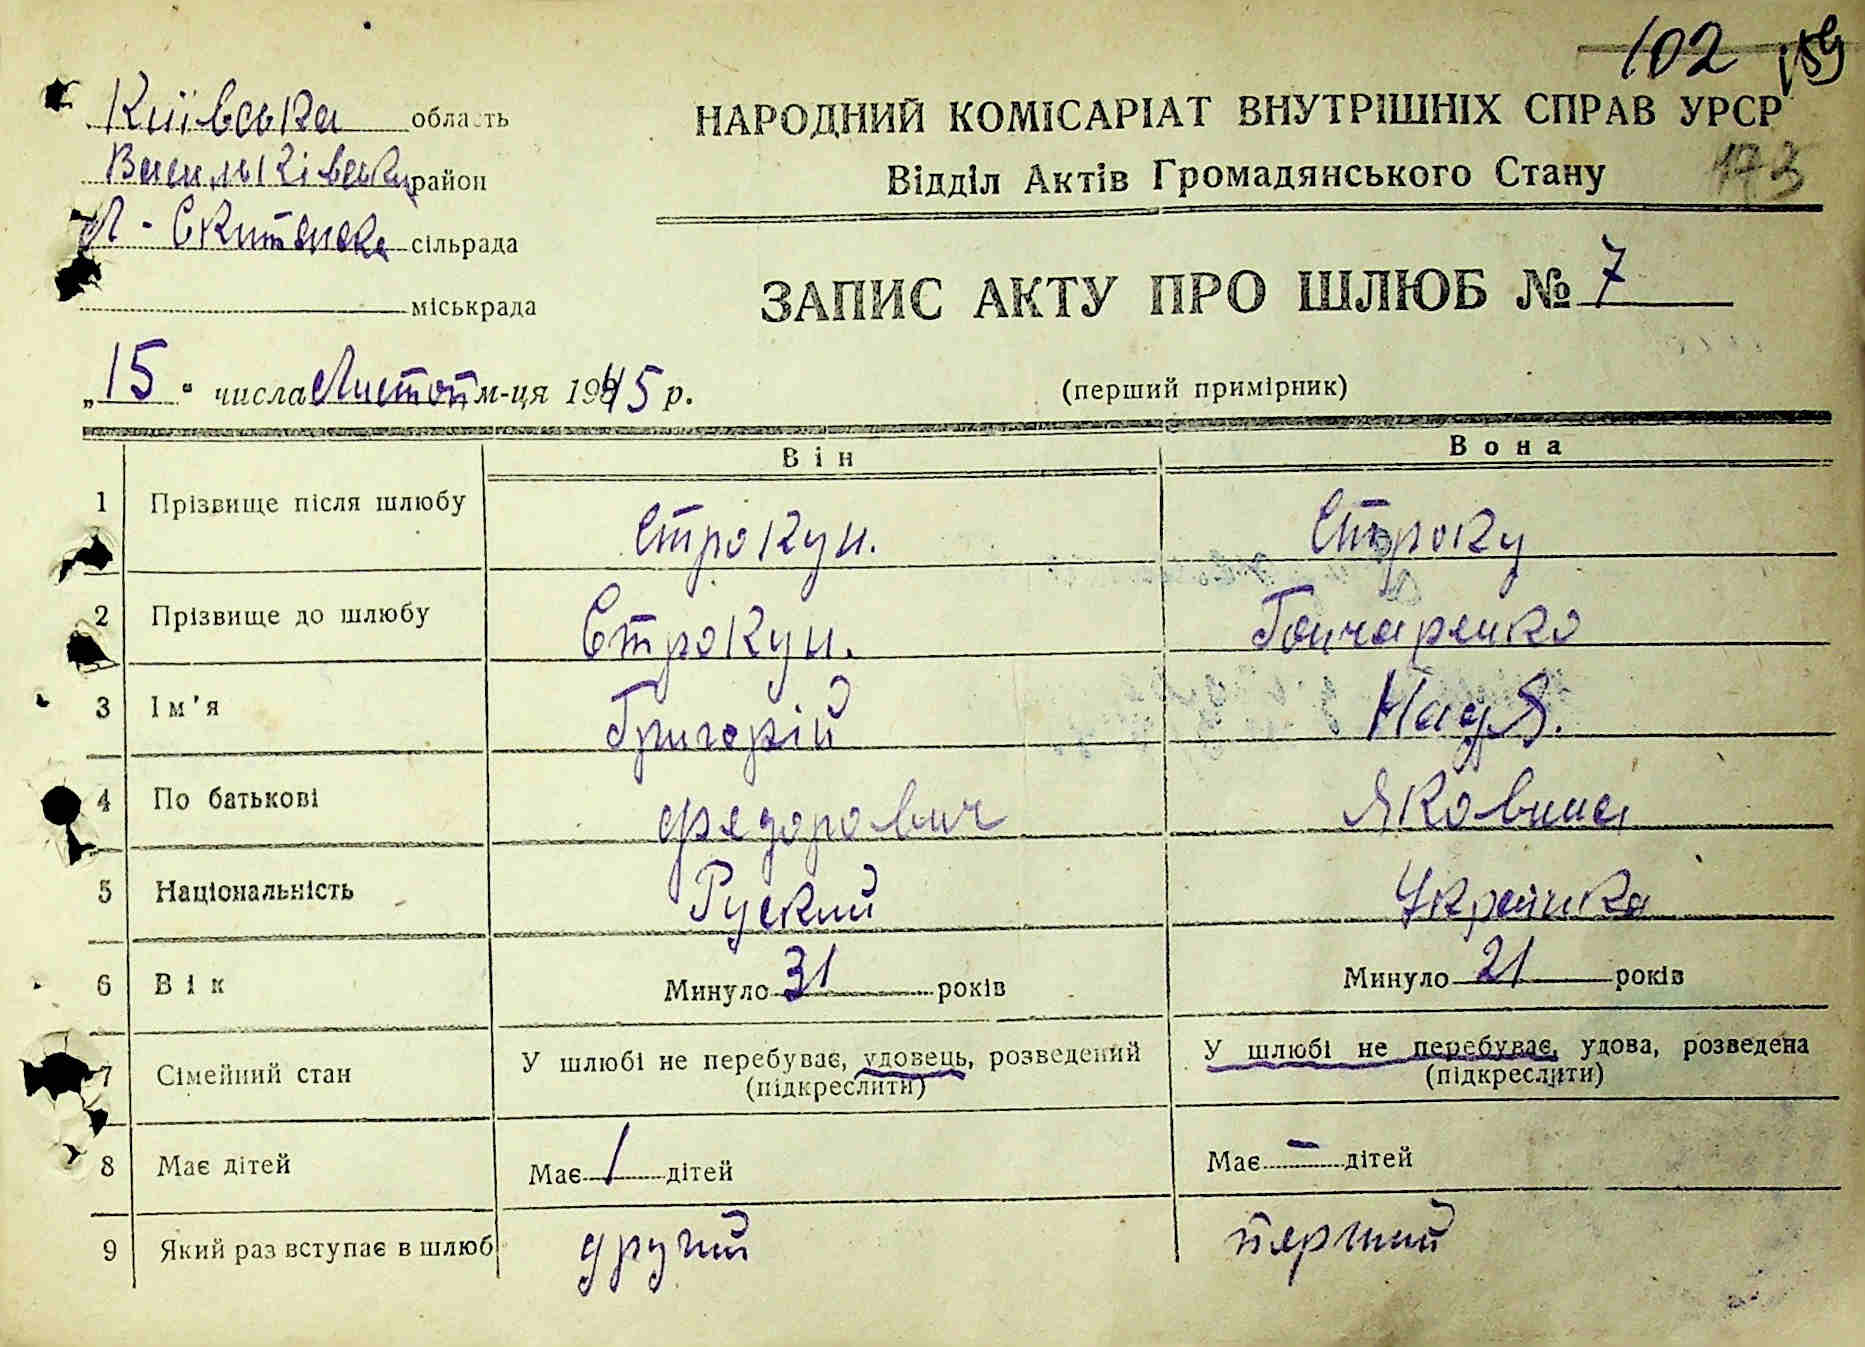 102 159
Київська область
НАРОДНИЙ КОМІСАРІАТ ВНУТРІШНІХ СПРАВ УРСР
Васильківський район
Відділ Актів Громадянського Стану 173
Л-Скитянска сільрада
ЗАПИС АКТУ ПРО ШЛЮБ № 7
міськрада
„15" числа Листоп м-ця 1945 р.
(перший примірник)
Він Вона
1 Прізвище після шлюбу Строкун. Строку
2 Прізвище до шлюбу Строкун. Гончаренко
3 Ім'я Григорій Надя.
4 По батькові Федорович Яковина
5 Національність Руский Українка
6 Вік Минуло 31 років Минуло 21 років
7 Сімейний стан У шлюбі не перебуває, удовець, розведений У шлюбі не перебуває, удова, розведена
(підкреслити) (підкреслити)
8 Має дітей Має 1 дітей Має – дітей
9 Який раз вступає в шлюб другий перший